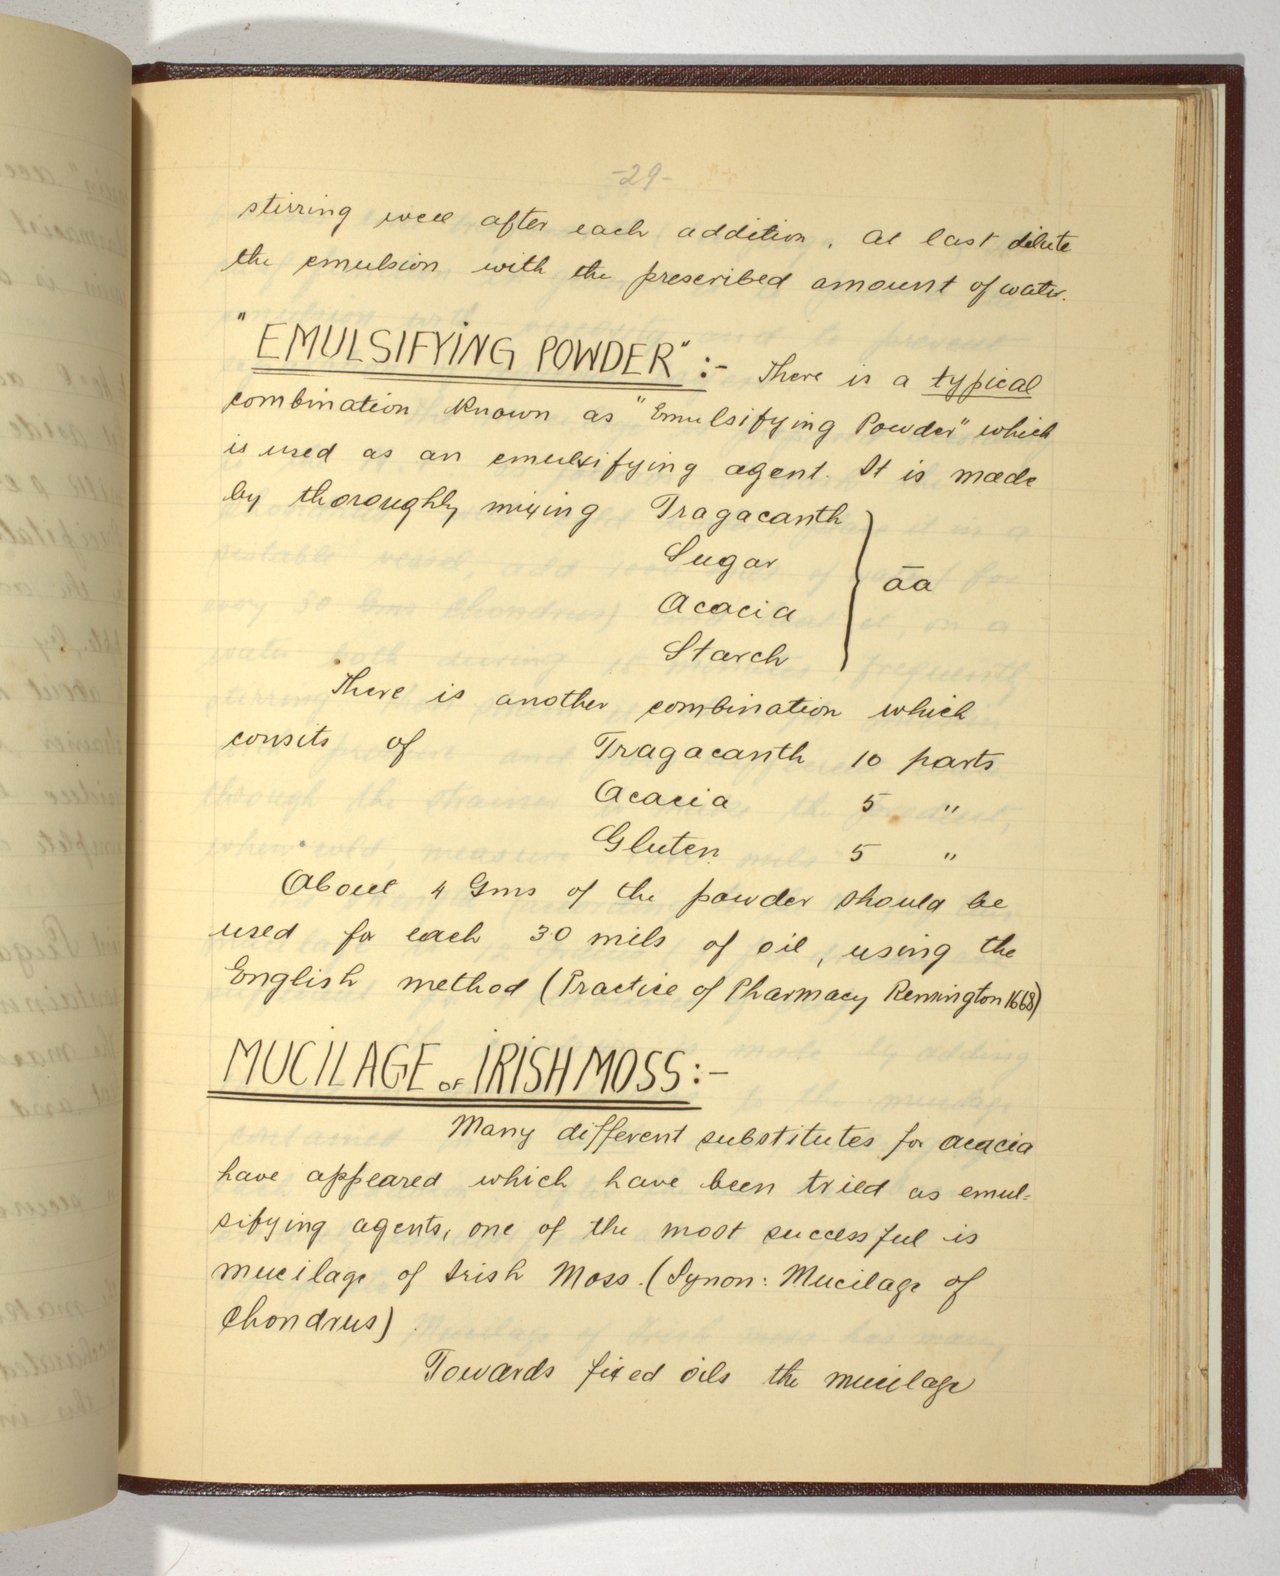 -29-
stirring well after each addition. At last dilute
the emulsion with the prescribed amount of water.
"EMULSIFYING POWDER" :- There is a typical
combination known as "Emulsifying Powder" which
is used as an emulsifying agent. It is made
by thoroughly mixing Tragacanth
Sugar
Acacia
Starch
āa
There is another combination which
consits of Tragacanth 10 parts
Acacia 5 "
Gluten 5 "
About 4 Gms of the powder should be
used for each 30 mils of oil, using the
English method (Practice of Pharmacy Remington 1668)
MUCILAGE OF IRISH MOSS :-
Many different substitutes for acacia
have appeared which have been tried as emul=
sifying agents, one of the most successful is
mucilage of Irish Moss. (Synon: Mucilage of
Chondrus)
Towards fixed oils the mucilage